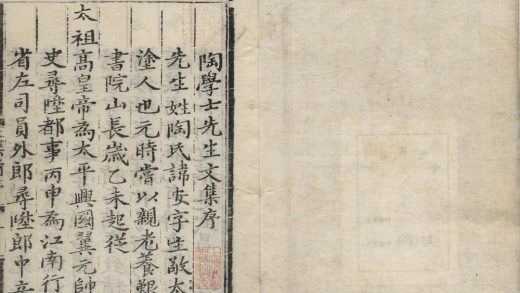 陶學士先生文集序
先生姓陶氏諱安字主敬太
塗人也元時嘗以親老養艱
書院山長歲乙未起從
太祖高皇帝為太平興國翼元帥
史尋陞都事丙申為江南行
省左司員外郎尋陞郎中